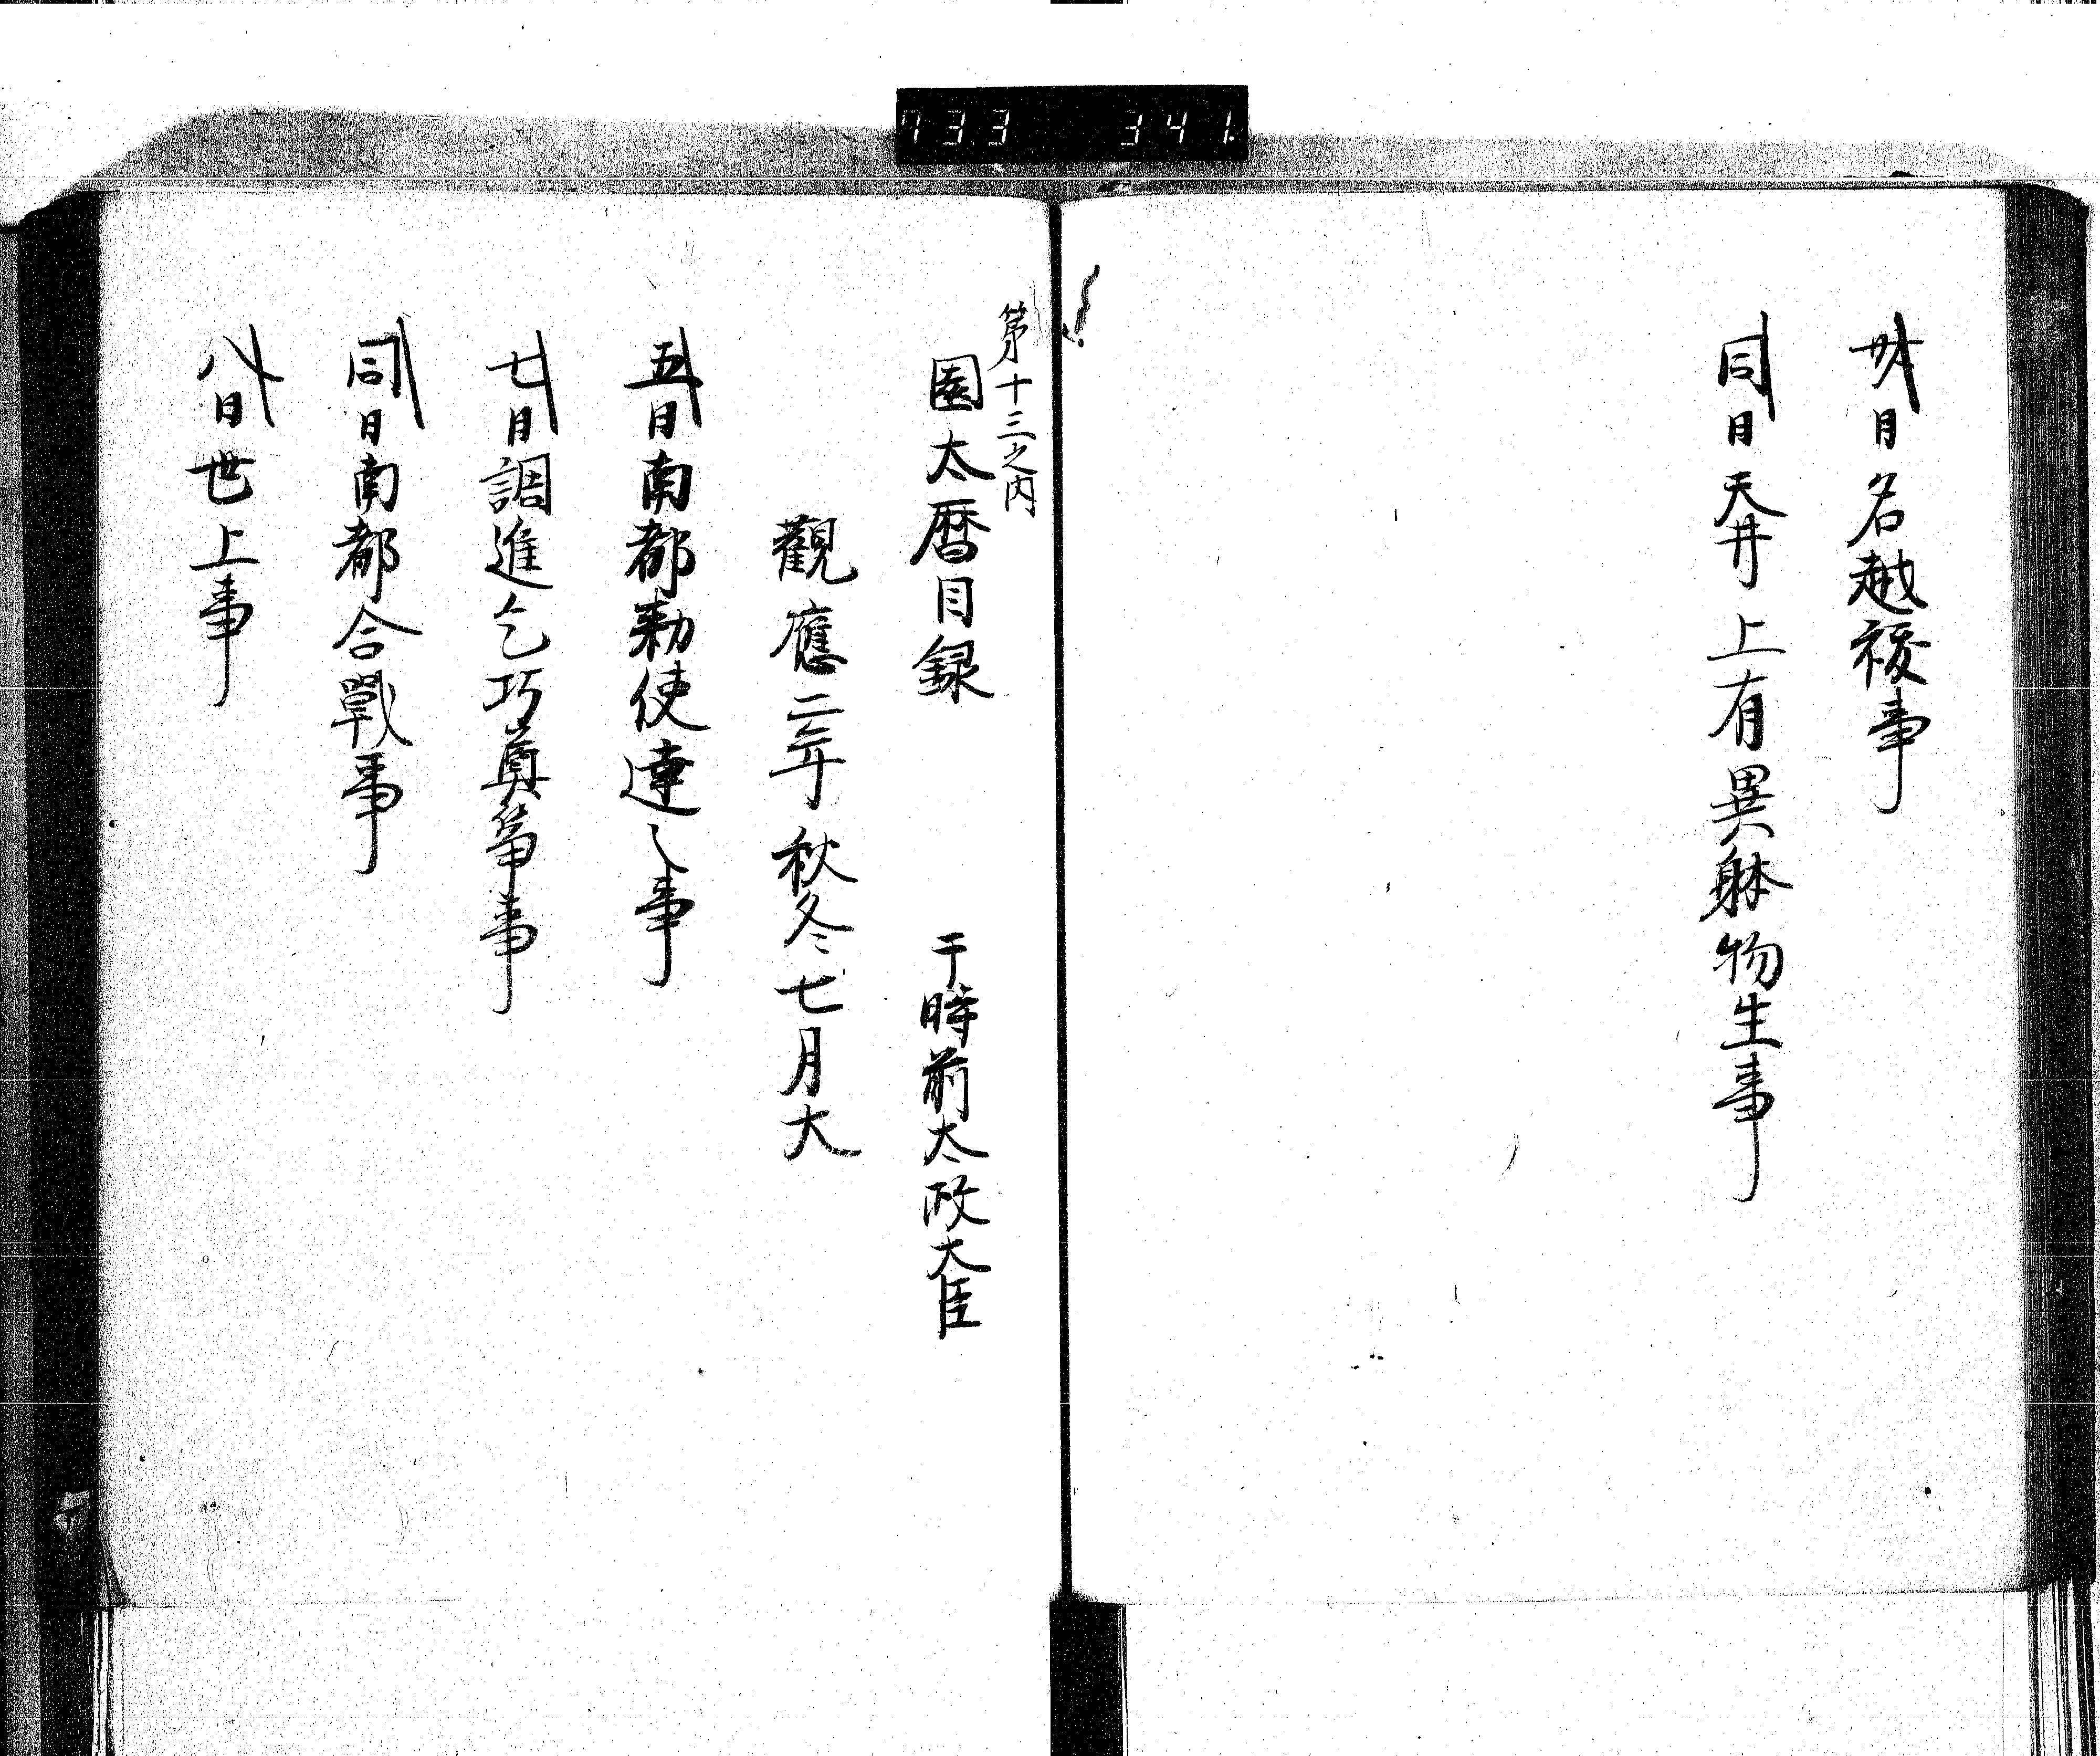 733 341
卅日名越祓事
同日天井上有異躰物生事
第十三之内
園太暦目録 于時前太政大臣
觀應二年秋冬七月大
五日南都勅使達之事
七日調進乞巧奠筝事
同日南都合戰事
八日世上事